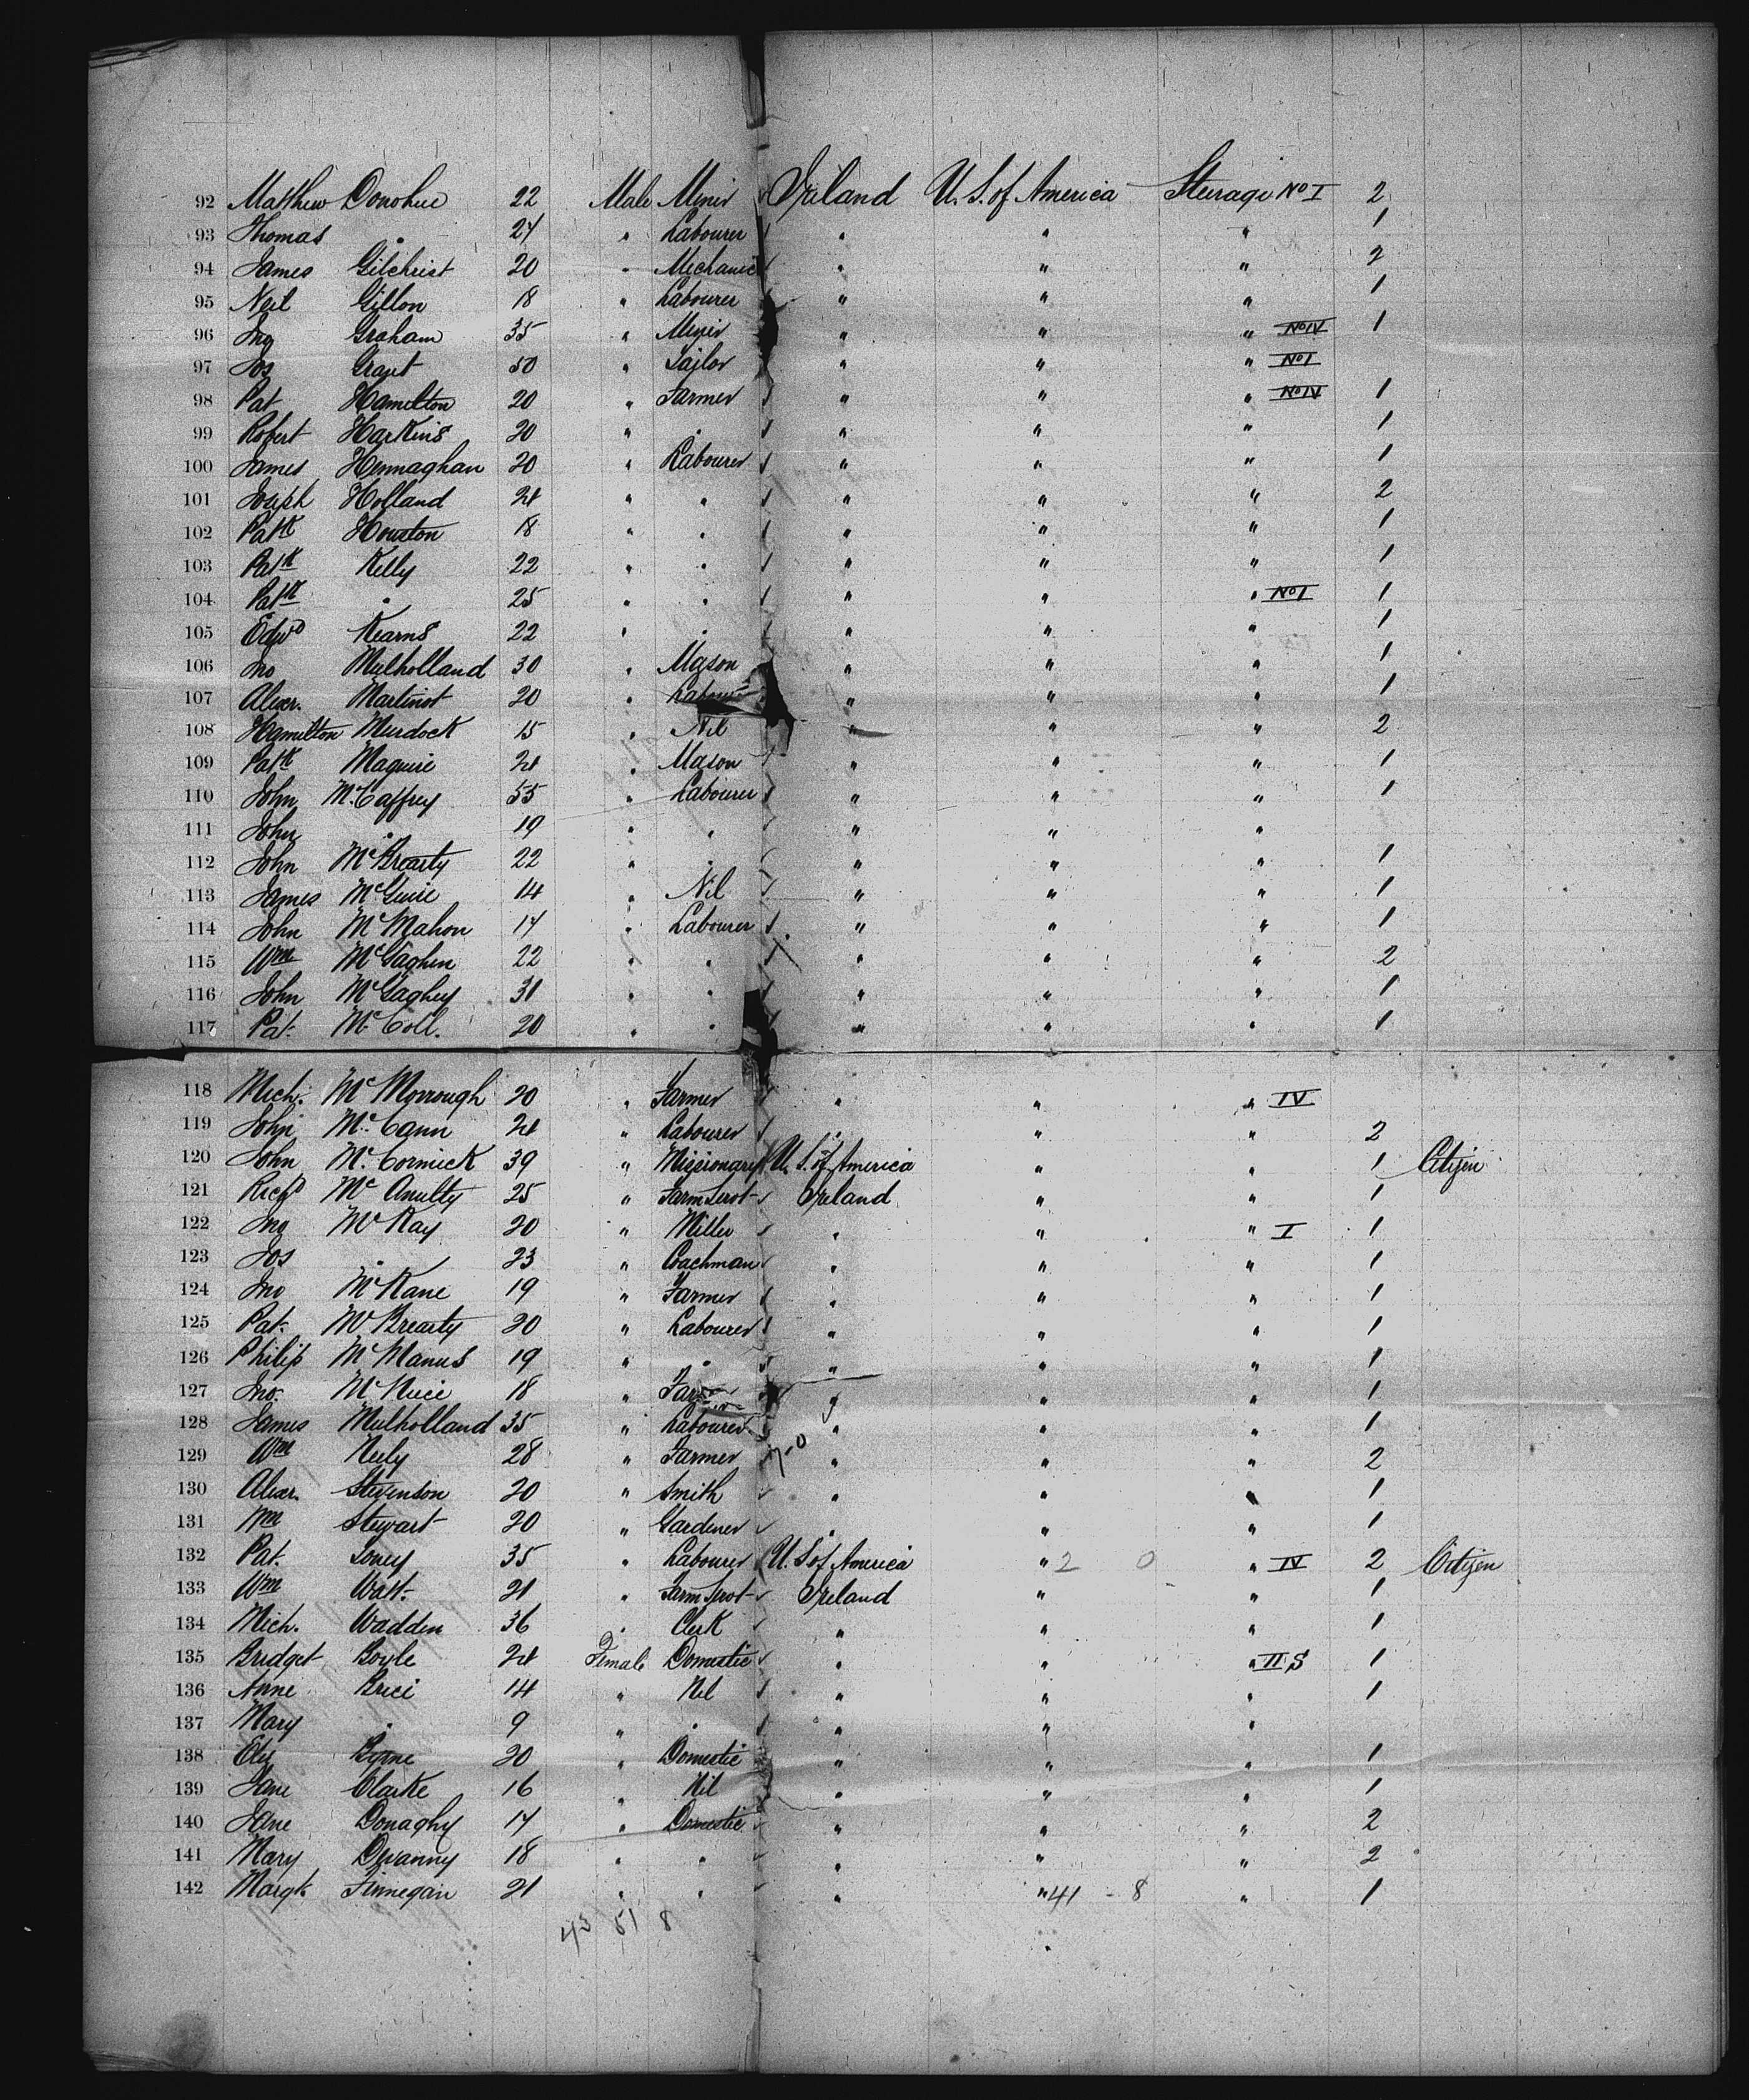 92 Matthew Donohue 22 Male Miner Ireland U. S. of America Steerage No I 2
93 Thomas " 24 " Labourer " " " 1
94 James Gilchrist 20 " Mechanic " " " 2
95 Neil Gillon 18 " Labourer " " " 1
96 Jno Graham 35 " Miner " " " No IV 1
97 Jos Grant 50 " Tailor " " " No I
98 Pat Hamelton 20 " Farmer " " " No IV 1
99 Robert Harkins 20 " " " " " 1
100 James Hennaghan 20 " Labourer " " " 1
101 Joseph Holland 24 " " " " " 2
102 Patk Houston 18 " " " " " 1
103 Patk Kelly 22 " " " " " 1
104 Patk " 25 " " " " " No I 1
105 Edwd Kearns 22 " " " " " 1
106 Jno Mulholland 30 " Mason " " " 1
107 Alexr. Martinot 20 " Labourer " " " 1
108 Hamilton Murdock 15 " Nil " " " 2
109 Patk Maguire 24 " Mason " " " 1
110 John McCaffrey 55 " Labourer " " " 1
111 John " 19 " " " " "
112 John McBrearty 22 " " " " " 1
113 James McGuire 14 " Nil " " " 1
114 John McMahon 17 " Labourer " " " 1
115 Wm McGaghen 22 " " " " " 2
116 John McGaghey 31 " " " " " 1
117 Pat. McColl. 20 " " " " " 1
118 Mich. McMorrough 20 " Farmer " " " IV
119 John McCann 24 " Labourer " " " 2
120 John McCormick 39 " Missionary U. S. of America " " 1 Citizen
121 Richd McAnulty 25 " Farm Servt Ireland " " 1
122 Jno McKay 20 " Miller " " " I 1
123 Jos " 23 " Coachman " " " 1
124 Jno McKane 19 " Farmer " " " 1
125 Pat. McBrearty 20 " Labourer " " " 1
126 Philip McManus 19 " " " " " 1
127 Jno. 18 " Farmer " " " 1
128 James Mulholland 35 " Labourer " " " 1
129 Wm Neely 28 " Farmer 7-0 " " " 2
130 Alexr. Stevenson 20 " Smith " " " 1
131 Wm Stewart 20 " Gardener " " " 1
132 Pat. 35 " Labourer U. S of America " 2 0 " IV 2 Citizen
133 Wm Watt. 21 " Farm Servt Ireland " " 1
134 Mich. Wadden 36 " Clerk " " " 1
135 Bridget Boyle 24 Female Domestic " " " II S 1
136 Anne Brice 14 " Nil " " " 1
137 Mary " 9 " " " " "
138 Byrne 20 " Domestic " " " 1
139 Jane Clarke 16 " Nil " " " 1
140 Jane Donaghy 17 " Domestic " " " 2
141 Mary Devanny 18 " " " " " 2
142 Margt. Finnegan 21 " " " " 41 - 8 " 1
43 51 8